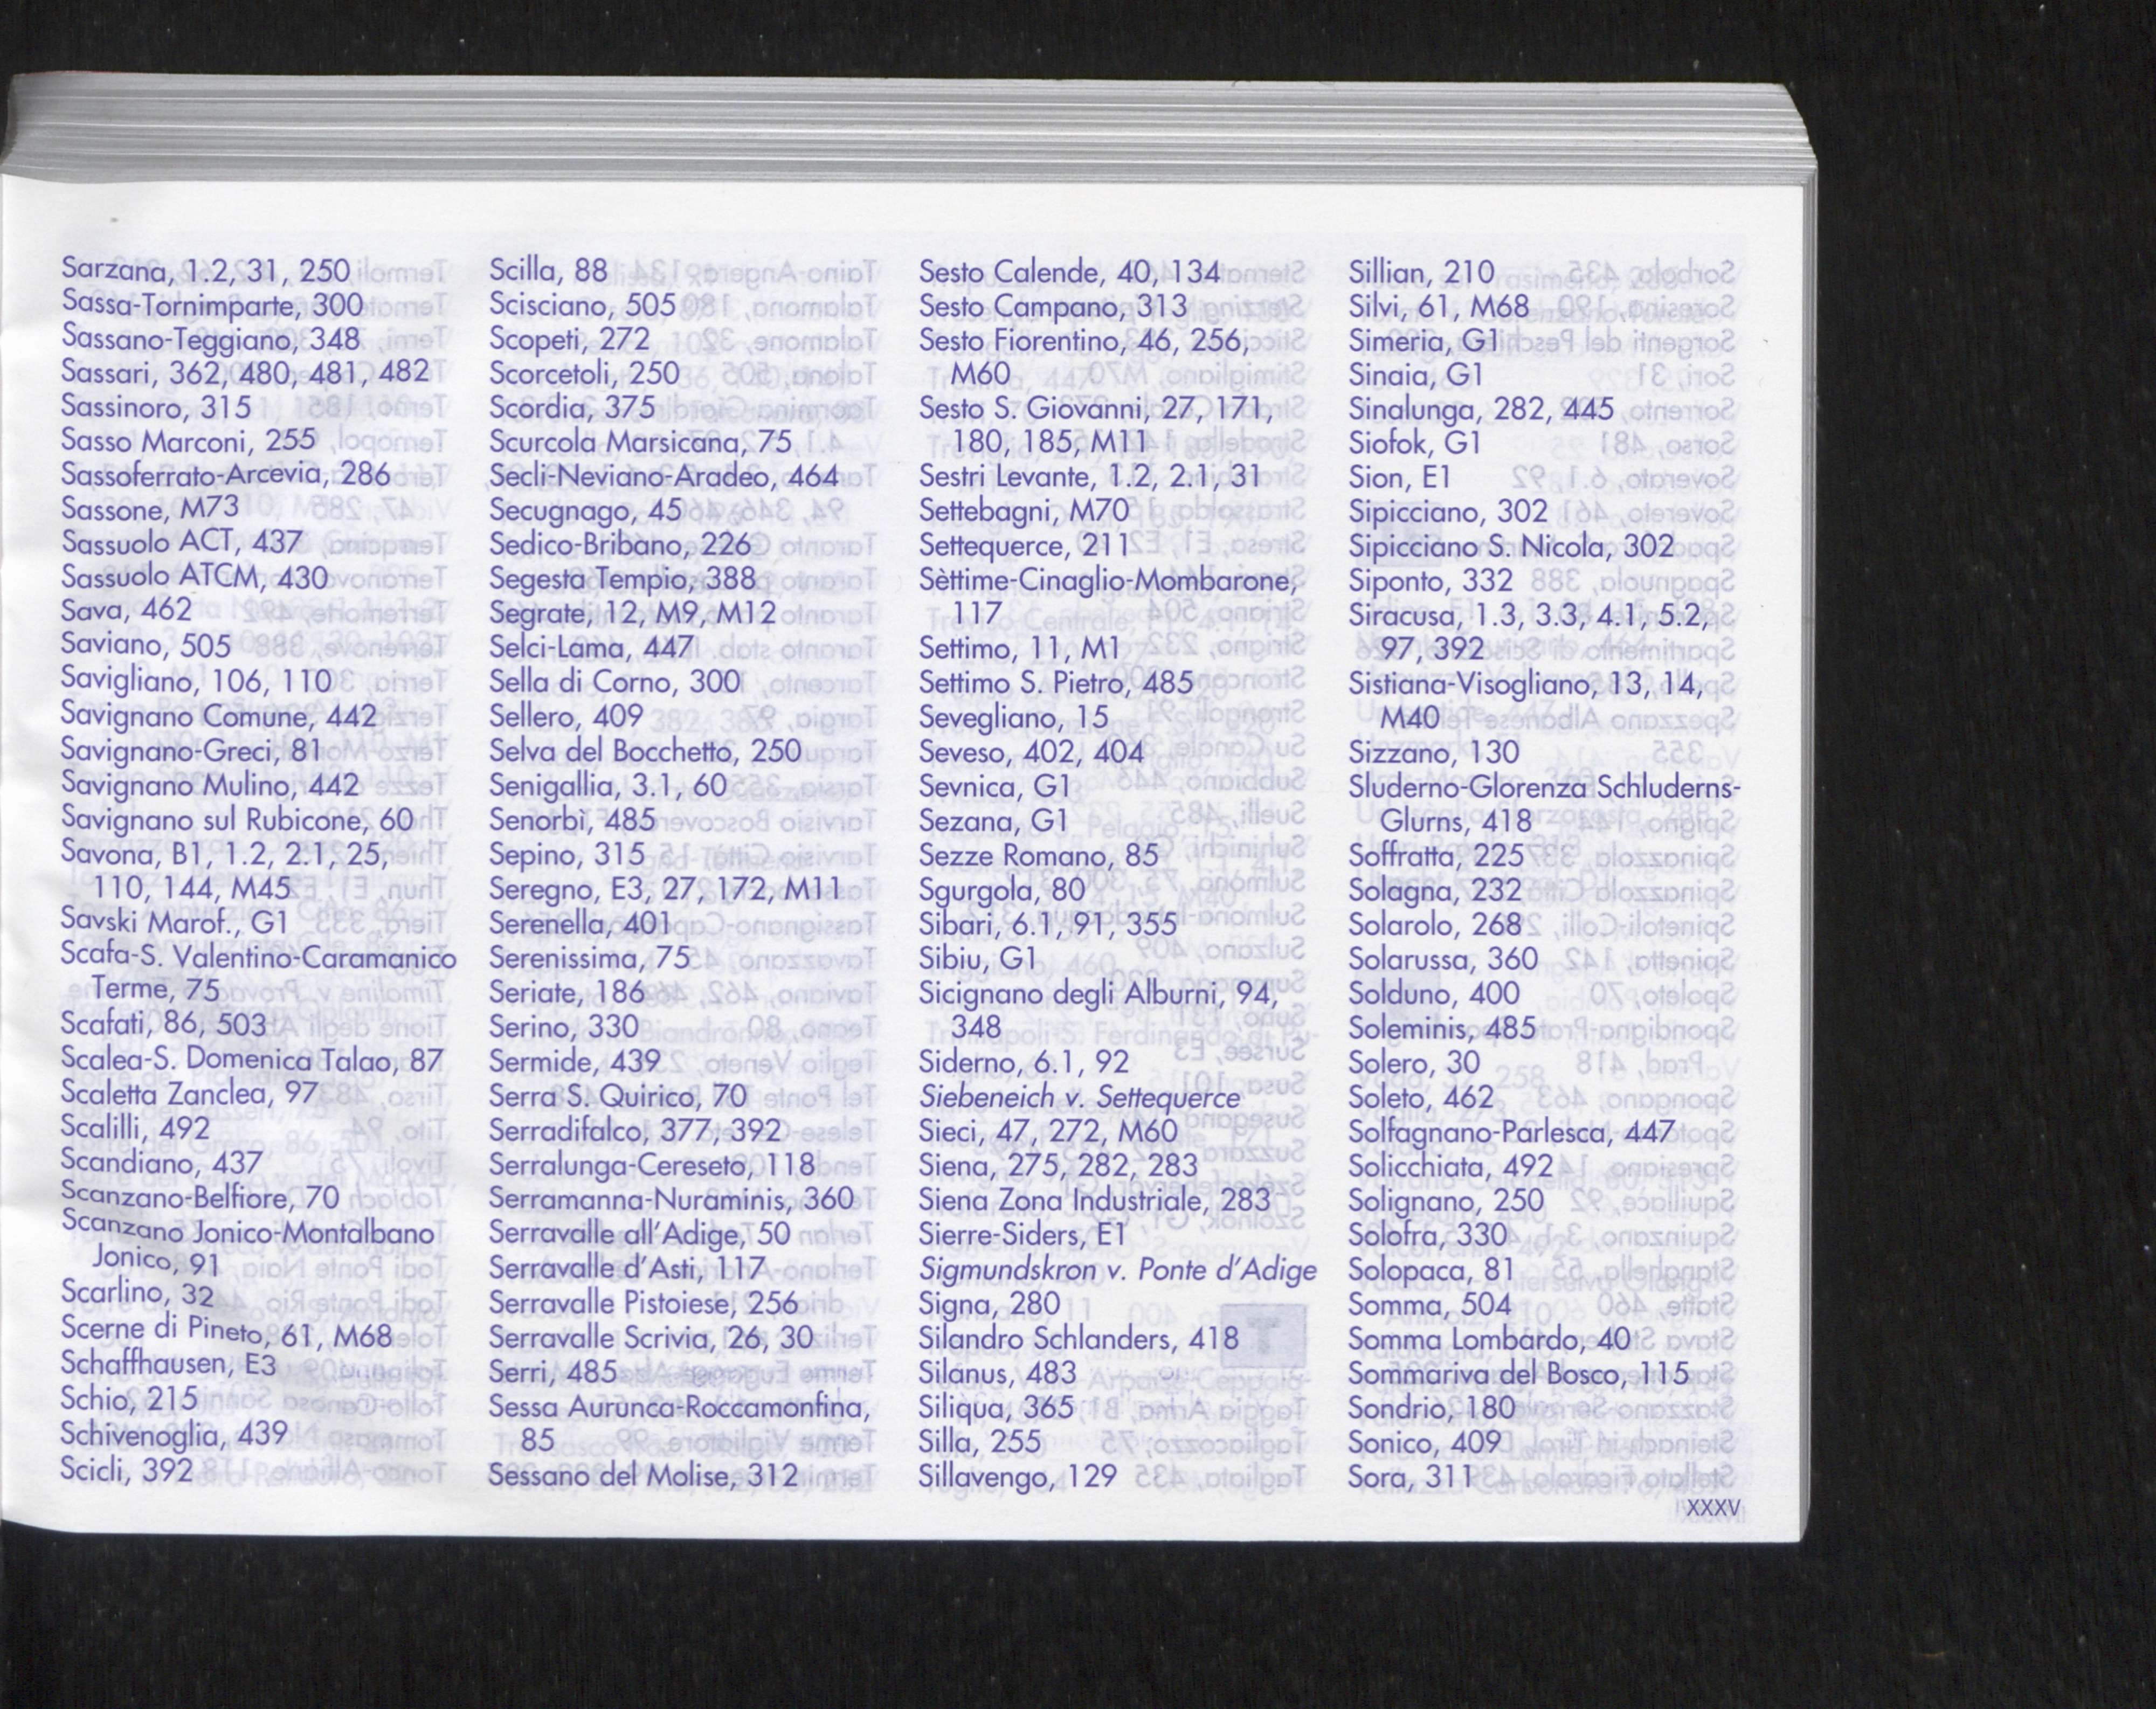 Sarzana, 1.2, 31, 250
Sassa-Tornimparte, 300
Sassano-Teggiano, 348
Sassari, 362, 480, 481, 482
Sassinoro, 315
Sasso Marconi, 255
Sassoferrato-Arcevia, 286
Sassone, M73
Sassuolo ACT, 437
Sassuolo ATCM, 430
Sava, 462
Saviano, 505
Savigliano, 106, 110
Savignano Comune, 442
Savignano-Greci, 81
Savignano Mulino, 442
Savignano sul Rubicone, 60
Savona, B1, 1.2, 2.1, 25,
110, 144, M45
Savski Marof., G1
Scafa-S. Valentino-Caramanico
Terme, 75
Scafati, 86, 503
Scalea-S. Domenica Talao, 87
Scaletta Zanclea, 97
Scalilli, 492
Scandiano, 437
Scanzano-Belfiore, 70
Scanzano Jonico-Montalbano
Jonico, 91
Scarlino, 32
Scerne di Pineto, 61, M68
Schaffhausen, E3
Schio, 215
Schivenoglia, 439
Scicli, 392
Scilla, 88
Scisciano, 505
Scopeti, 272
Scorcetoli, 250
Scordia, 375
Scurcola Marsicana, 75
Secli-Neviano-Aradeo, 464
Secugnago, 45
Sedico-Bribano, 226
Segesta Tempio, 388
Segrate, 12, M9, M12
Selci-Lama, 447
Sella di Corno, 300
Sellero, 409
Selva del Bocchetto, 250
Senigallia, 3.1, 60
Senorbì, 485
Sepino, 315
Seregno, E3, 27, 172, M11
Serenella, 401
Serenissima, 75
Seriate, 186
Serino, 330
Sermide, 439
Serra S. Quirico, 70
Serradifalco, 377, 392
Serralunga-Cereseto, 118
Serramanna-Nuraminis, 360
Serravalle all'Adige, 50
Serravalle d'Asti, 117
Serravalle Pistoiese, 256
Serravalle Scrivia, 26, 30
Serri, 485
Sessa Aurunca-Roccamonfina,
85
Sessano del Molise, 312
Sesto Calende, 40, 134
Sesto Campano, 313
Sesto Fiorentino, 46, 256,
M60
Sesto S. Giovanni, 27, 171,
180, 185, M11
Sestri Levante, 1.2, 2.1, 31
Settebagni, M70
Settequerce, 211
Sèttime-Cinaglio-Mombarone,
117
Settimo, 11, M1
Settimo S. Pietro, 485
Sevegliano, 15
Seveso, 402, 404
Sevnica, G1
Sezana, G1
Sezze Romano, 85
Sgurgola, 80
Sibari, 6.1, 91, 355
Sibiu, G1
Sicignano degli Alburni, 94,
348
Siderno, 6.1, 92
Siebeneich v. Settequerce
Sieci, 47, 272, M60
Siena, 275, 282, 283
Siena Zona Industriale, 283
Sierre-Siders, E1
Sigmundskron v. Ponte d'Adige
Signa, 280
Silandro Schlanders, 418
Silanus, 483
Siliqua, 365
Silla, 255
Sillavengo, 129
Sillian, 210
Silvi, 61, M68
Simeria, G1
Sinaia, G1
Sinalunga, 282, 445
Siofok, G1
Sion, E1
Sipicciano, 302
Sipicciano S. Nicola, 302
Siponto, 332
Siracusa, 1.3, 3.3, 4.1, 5.2,
97, 392
Sistiana-Visogliano, 13, 14,
M40
Sizzano, 130
Sluderno-Glorenza Schluderns-
Glurns, 418
Soffratta, 225
Solagna, 232
Solarolo, 268
Solarussa, 360
Solduno, 400
Soleminis, 485
Solero, 30
Soleto, 462
Solfagnano-Parlesca, 447
Solicchiata, 492
Solignano, 250
Solofra, 330
Solopaca, 81
Somma, 504
Somma Lombardo, 40
Sommariva del Bosco, 115
Sondrio, 180
Sonico, 409
Sora, 311
XXXV